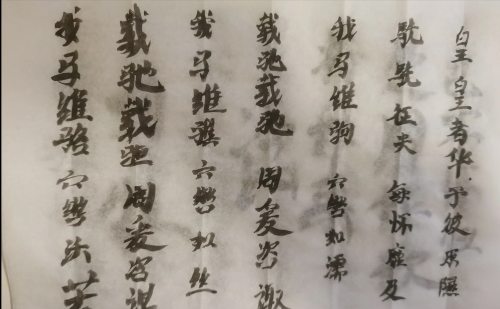 皇皇者华 于彼原隰
駪駪征夫 每怀靡及
我马维驹 六辔如濡
载驰载驱 周爰咨诹
我马维骐 六辔如丝
载驰载驱 周爰咨谋
我马维骆 六辔沃若